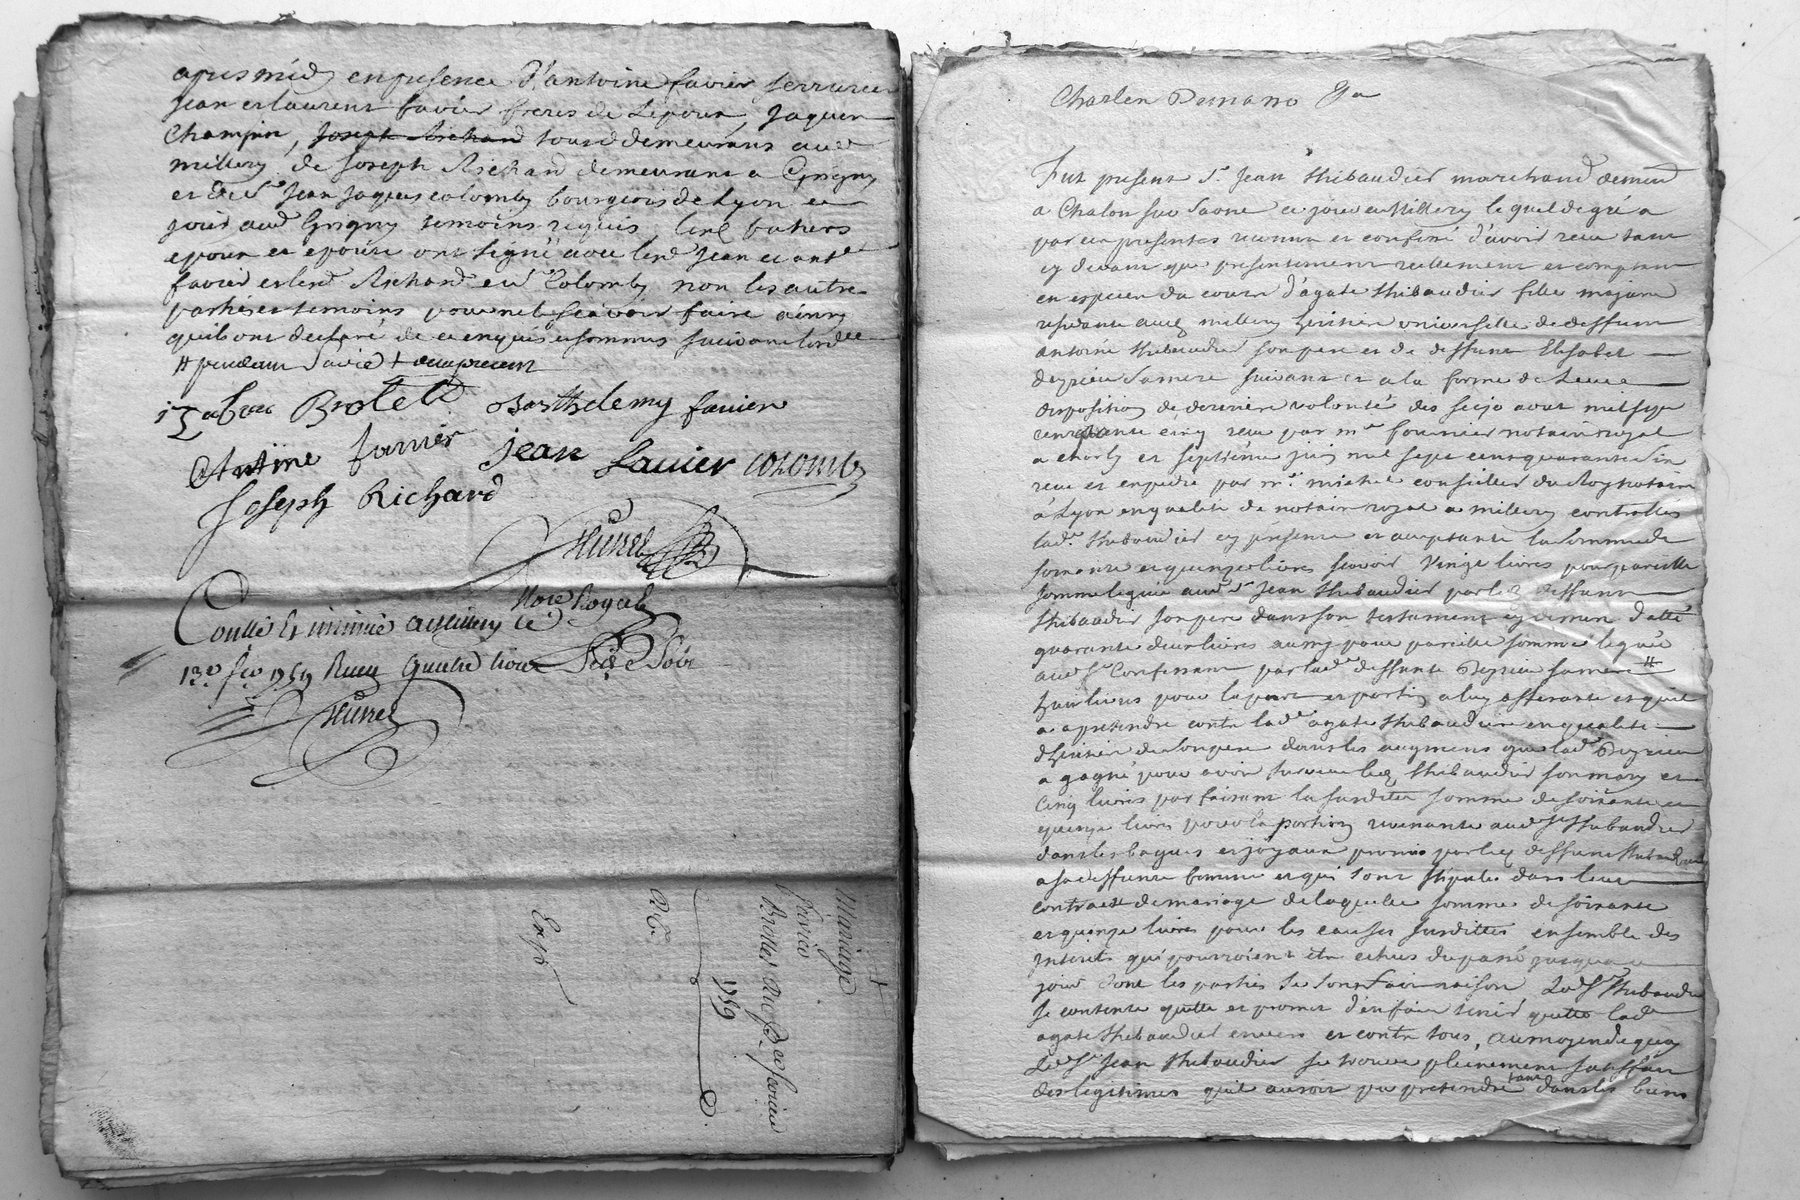 apres midy en presence d'antoine favier serrurier
jean et laurent favier freres de l'epoux, jaques
Champin, joseph Richard tous demeurans aud
millery de joseph Richard demeurant a Grigny
et de Sr jean jaques colomby bourgeois de Lyon ce
jour aud Grigny temoins requis, led futurs
epoux et epouse ont signé avec lesd jean et antne
favier et led Richard et Colomby non les autres
parties et temoins pour ne le scavoir faire ainsy
qu'ils ont declaré de ce enquis et sommes suivant l'ordce
isabeau Brotelt Barthelemy favier
Antoine favier jean favier colomby
joseph Richard
Nore Royal
Conllé Et insinué a Millery le
13e fev 1759 Recu Quatre livre
Mariage
1759
Exp
Fut present Sr jean thibaudier marchand demeurt
a Chalon sur Saone ce jour a Millery le quel de gré a
par ces presentes reconnu et confessé d'avoir recu tant
cy devant que presentement reellement et comptant
en especes du cours d'agate thibaudier fille majeure
residante aud millery heritiere universelle de deffunt
antoine thibaudier son pere et de deffunte Elisabet
deyrieu sa mere suivant et a la forme de leurs
disposition de derniere volonté des seize aout mil sept
cent trente cinq recu par me fournier notaire royal
a charly et septieme juin mil sept cent quarante six
recu et expedié par mr michel conseiller du Roy notaire
a Lyon en qualité de notaire royal a millery controllés
lad. thibaudier cy presente et acceptante la somme de
soixante et quinze livres scavoir vingt livres pour pareille
somme leguée aud Sr jean thibaudier par led deffunt
thibaudier son pere dans son testament cy dessus datté
quarante deux livres aussy pour pareille somme leguée
aud Sr Confessant par lad deffunte Deyrieu sa mere
huit livres pour la part et portion a luy afferante et qu'il
a a pretendre contre lad agate thibaudier en qualité
d'heritiere de son pere dans les augmens que lad Deyrieu
a gagné pour avoir survecu led thibaudier son mary et
cinq livres parfaisant la susditte somme de soixante et
quinze livres pour la portion revenante aud Sr thibaudier
dans les bagues et joyaux promis par led deffunt thibaudier
a sa deffunte femme et qui sont stipulés dans leur
contract de mariage de laquelle somme de soixante
et quinze livres pour les causes susdittes ensemble des
interets qui pourroient etre echus du passé jusqu'a ce
jour dont les parties se sont fait raison led Sr thibaudier
se contente quitte et promet d'en faire tenir quitte lad
agate thibaudier envers et contre tous, au moyen de quoy
led Sr jean thibaudier se trouve pleinement satisfait
des legitimes qu'il auroit pu pretendre tant dans les biens